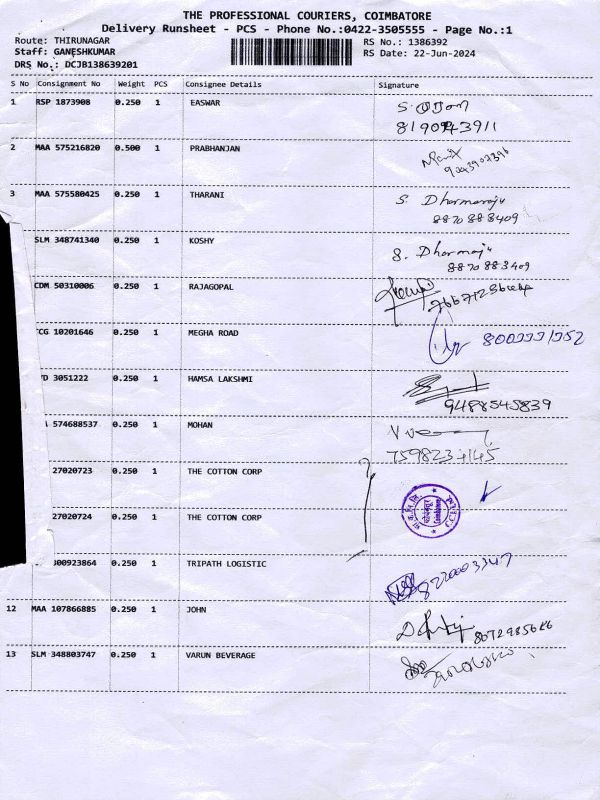 THE PROFESSIONAL COURIERS, COIMBATORE
Delivery Runsheet - PCS - Phone No.:0422-3505555 - Page No.:1
Route: THIRUNAGAR RS No.: 1386392
Staff: GANESHKUMAR RS Date: 22-Jun-2024
DRS No.: DCJB138639201
S No Consignment No Weight PCS Consignee Details Signature
1 RSP 1873908 0.250 1 EASWAR
8190943911
2 MAA 575216820 0.500 1 PRABHANJAN
3 MAA 575580425 0.250 1 THARANI S. Dharmaraju
8870888409
SLM 348741340 0.250 1 KOSHY S. Dharmaju
8870883409
CDM 50310006 0.250 1 RAJAGOPAL
CG 10201646 0.250 1 MEGHA ROAD
D 3051222 0.250 1 HAMSA LAKSHMI
9488545839
574688537 0.250 1 MOHAN
27020723 0.250 1 THE COTTON CORP
27020724 0.250 1 THE COTTON CORP
J00923864 0.250 1 TRIPATH LOGISTIC
12 MAA 107866885 0.250 1 JOHN
13 SLM 348803747 0.250 1 VARUN BEVERAGE